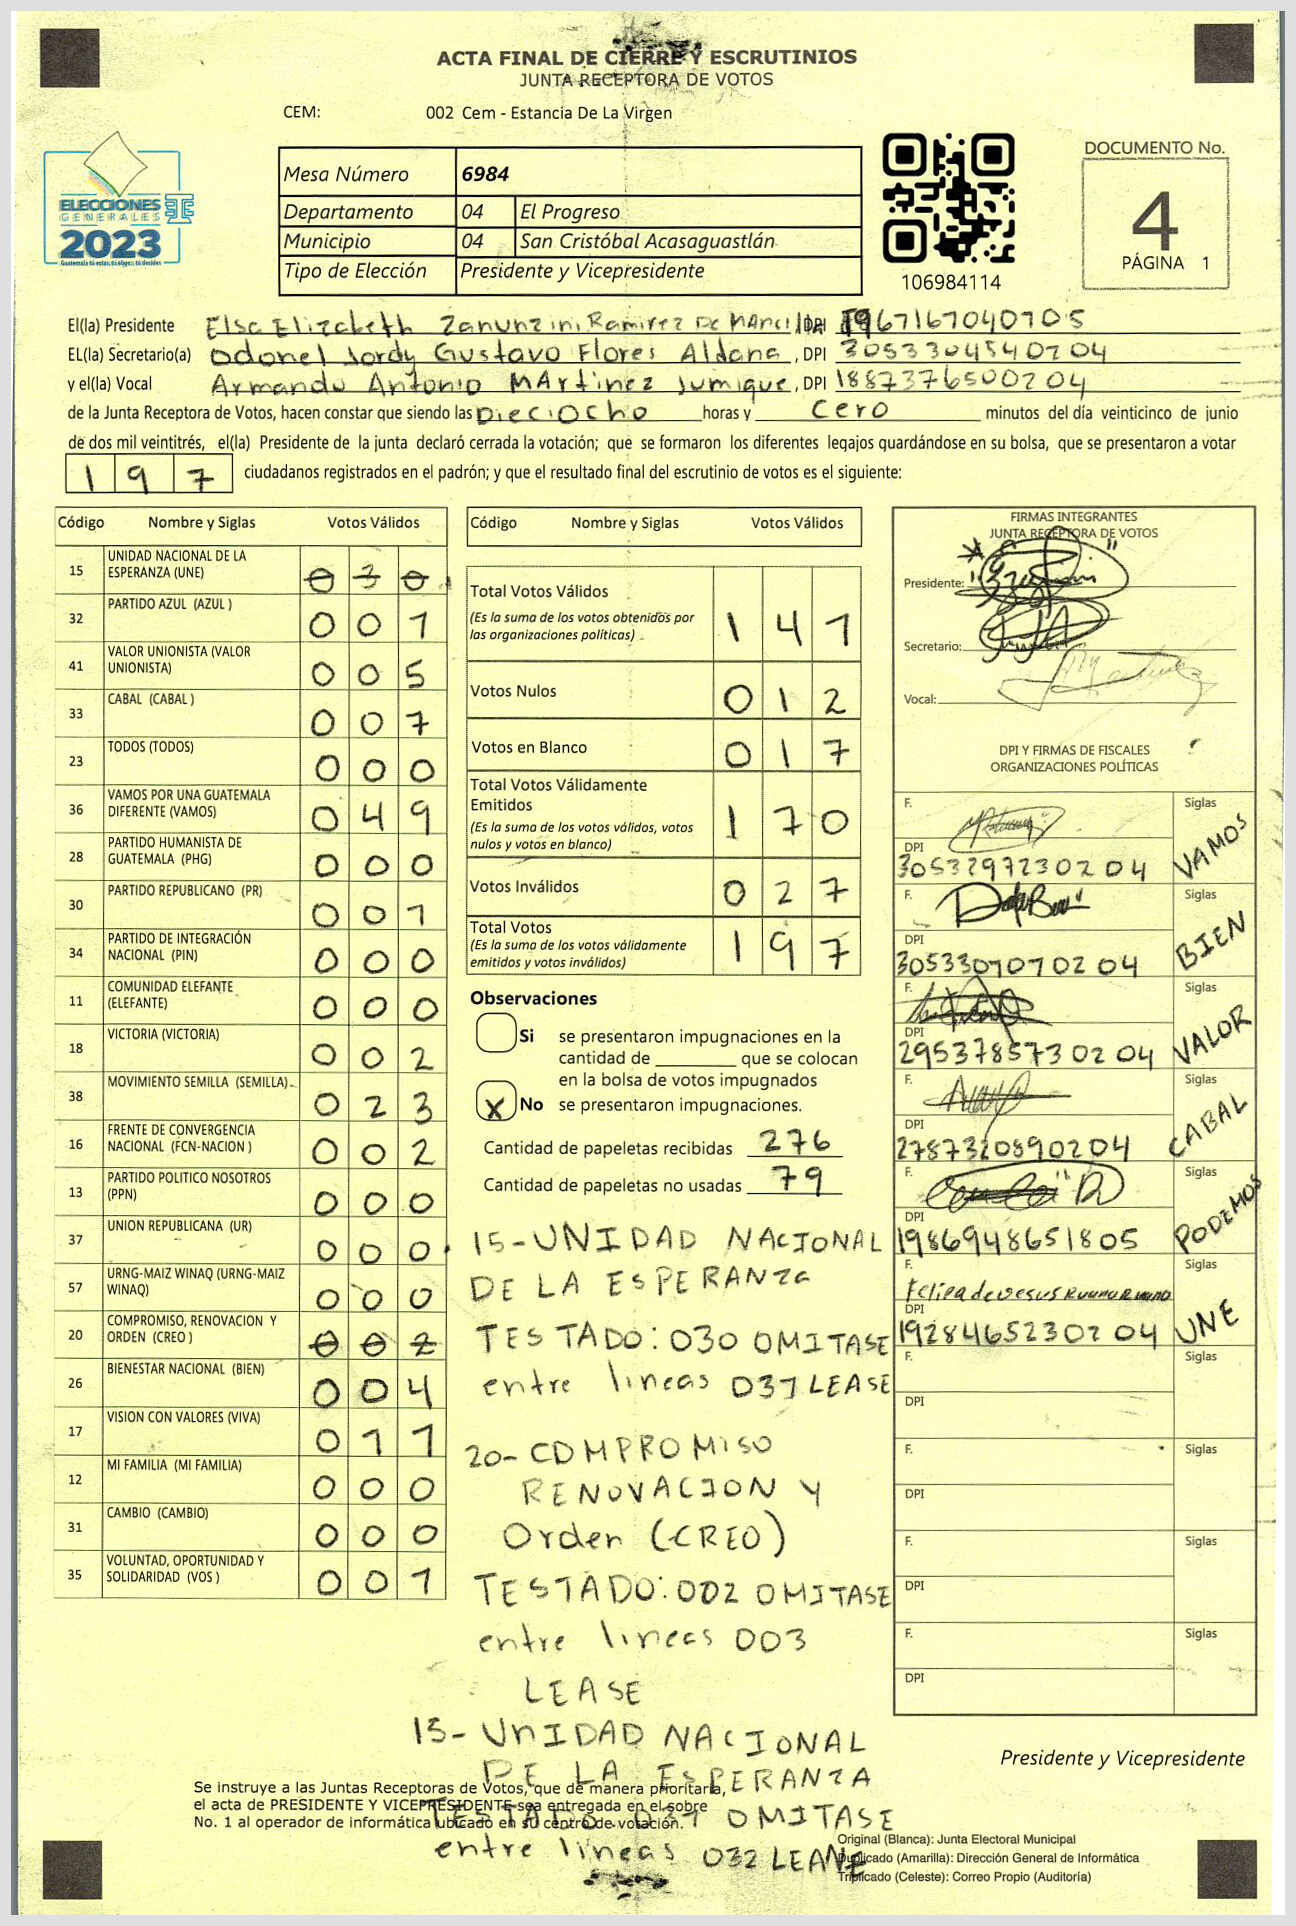 ACTA FINAL DE CIERRE Y ESCRUTINIOS
JUNTA RECEPTORA DE VOTOS
CEM: 002 Cem - Estancia De La Virgen
ELECCIONES
GENERALES
2023
Mesa Número 6984
Departamento 04 El Progreso
Municipio 04 San Cristóbal Acasaguastlán
Tipo de Elección Presidente y Vicepresidente
106984114
DOCUMENTO No.
4
PÁGINA 1
El(la) Presidente Elsa Elizabeth Zanunzini Ramirez De Mancilla DPI 1967167040705
EL(la) Secretario(a) Odonel Jordy Gustavo Flores Aldana, DPI 3053304540204
y el(la) Vocal Armando Antonio MArtinez Jumique, DPI 1887376500204
de la Junta Receptora de Votos, hacen constar que siendo las DieciOcho horas y Cero minutos del día veinticinco de junio
de dos mil veintitrés, el(la) Presidente de la junta declaró cerrada la votación; que se formaron los diferentes legajos guardándose en su bolsa, que se presentaron a votar
197 ciudadanos registrados en el padrón; y que el resultado final del escrutinio de votos es el siguiente:
Código Nombre y Siglas Votos Válidos
15 UNIDAD NACIONAL DE LA ESPERANZA (UNE) 0 3 0
32 PARTIDO AZUL (AZUL ) 0 0 1
41 VALOR UNIONISTA (VALOR UNIONISTA) 0 0 5
33 CABAL (CABAL ) 0 0 7
23 TODOS (TODOS) 0 0 0
36 VAMOS POR UNA GUATEMALA DIFERENTE (VAMOS) 0 4 9
28 PARTIDO HUMANISTA DE GUATEMALA (PHG) 0 0 0
30 PARTIDO REPUBLICANO (PR) 0 0 1
34 PARTIDO DE INTEGRACIÓN NACIONAL (PIN) 0 0 0
11 COMUNIDAD ELEFANTE (ELEFANTE) 0 0 0
18 VICTORIA (VICTORIA) 0 0 2
38 MOVIMIENTO SEMILLA (SEMILLA) 0 2 3
16 FRENTE DE CONVERGENCIA NACIONAL (FCN-NACION ) 0 0 2
13 PARTIDO POLITICO NOSOTROS (PPN) 0 0 0
37 UNION REPUBLICANA (UR) 0 0 0
57 URNG-MAIZ WINAQ (URNG-MAIZ WINAQ) 0 0 0
20 COMPROMISO, RENOVACION Y ORDEN (CREO ) 0 0 2
26 BIENESTAR NACIONAL (BIEN) 0 0 4
17 VISION CON VALORES (VIVA) 0 1 1
12 MI FAMILIA (MI FAMILIA) 0 0 0
31 CAMBIO (CAMBIO) 0 0 0
35 VOLUNTAD, OPORTUNIDAD Y SOLIDARIDAD (VOS ) 0 0 1
Código Nombre y Siglas Votos Válidos
Total Votos Válidos
(Es la suma de los votos obtenidos por
las organizaciones políticas) 1 4 1
Votos Nulos 0 1 2
Votos en Blanco 0 1 7
Total Votos Válidamente
Emitidos
(Es la suma de los votos válidos, votos
nulos y votos en blanco) 1 7 0
Votos Inválidos 0 2 7
Total Votos
(Es la suma de los votos válidamente
emitidos y votos inválidos) 1 9 7
Observaciones
Si se presentaron impugnaciones en la
cantidad de ________ que se colocan
en la bolsa de votos impugnados
X No se presentaron impugnaciones.
Cantidad de papeletas recibidas 276
Cantidad de papeletas no usadas 79
15-UNIDAD NACIONAL
DE LA ESPERANZA
TESTADO: 030 OMITASE
entre lineas 031 LEASE
20-COMPROMISO
RENOVACION Y
Orden (CREO)
TESTADO: 002 OMITASE
entre lineas 003
LEASE
15-UNIDAD NACIONAL
DE LA ESPERANZA
TESTADO. 031 OMITASE
entre lineas 032 LEANE
FIRMAS INTEGRANTES
JUNTA RECEPTORA DE VOTOS
Presidente:
Secretario:
Vocal:
DPI Y FIRMAS DE FISCALES
ORGANIZACIONES POLÍTICAS
F. Siglas
DPI 3053297230204 VAMOS
F. Siglas
DPI 3053307070204 BIEN
F. Siglas
DPI 2953785730204 VALOR
F. Siglas
DPI 2787320890204 CABAL
F. Siglas
DPI 1986948651805 PODEMOS
F. Felipa de Jesus Ruano Ruano Siglas
DPI 1928465230204 UNE
F. Siglas
DPI
F. Siglas
DPI
F. Siglas
DPI
F. Siglas
DPI
Presidente y Vicepresidente
Se instruye a las Juntas Receptoras de Votos, que de manera prioritaria,
el acta de PRESIDENTE Y VICEPRESIDENTE sea entregada en el sobre
No. 1 al operador de informática ubicado en su centro de votación.
Original (Blanca): Junta Electoral Municipal
Duplicado (Amarilla): Dirección General de Informática
Triplicado (Celeste): Correo Propio (Auditoría)